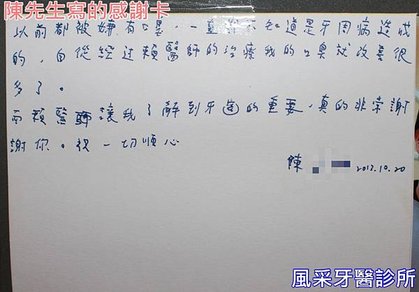 陳先生寫的感謝卡
以前都被嫌有口臭,一直都不知道是牙周病造成
的,自從經過賴醫師的治療我的口臭改善很
多了。
而賴醫師讓我了解到牙齒的重要,真的非常謝
謝你。祝一切順心
陳
2013.10.20
風采牙醫診所